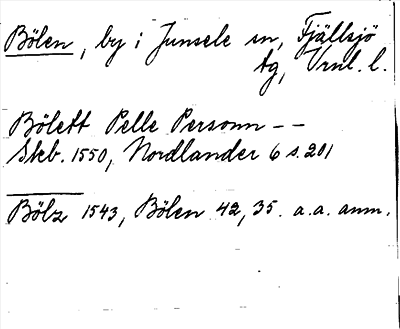 Bölen, by i Junsele sn, Fjällsjö
tg, Vrnl. l.
Bölett Pelle Personn --
Skb. 1550, Nordlander 6 s. 201
Bölz 1543, Bölen 42, 35. a.a. anm.